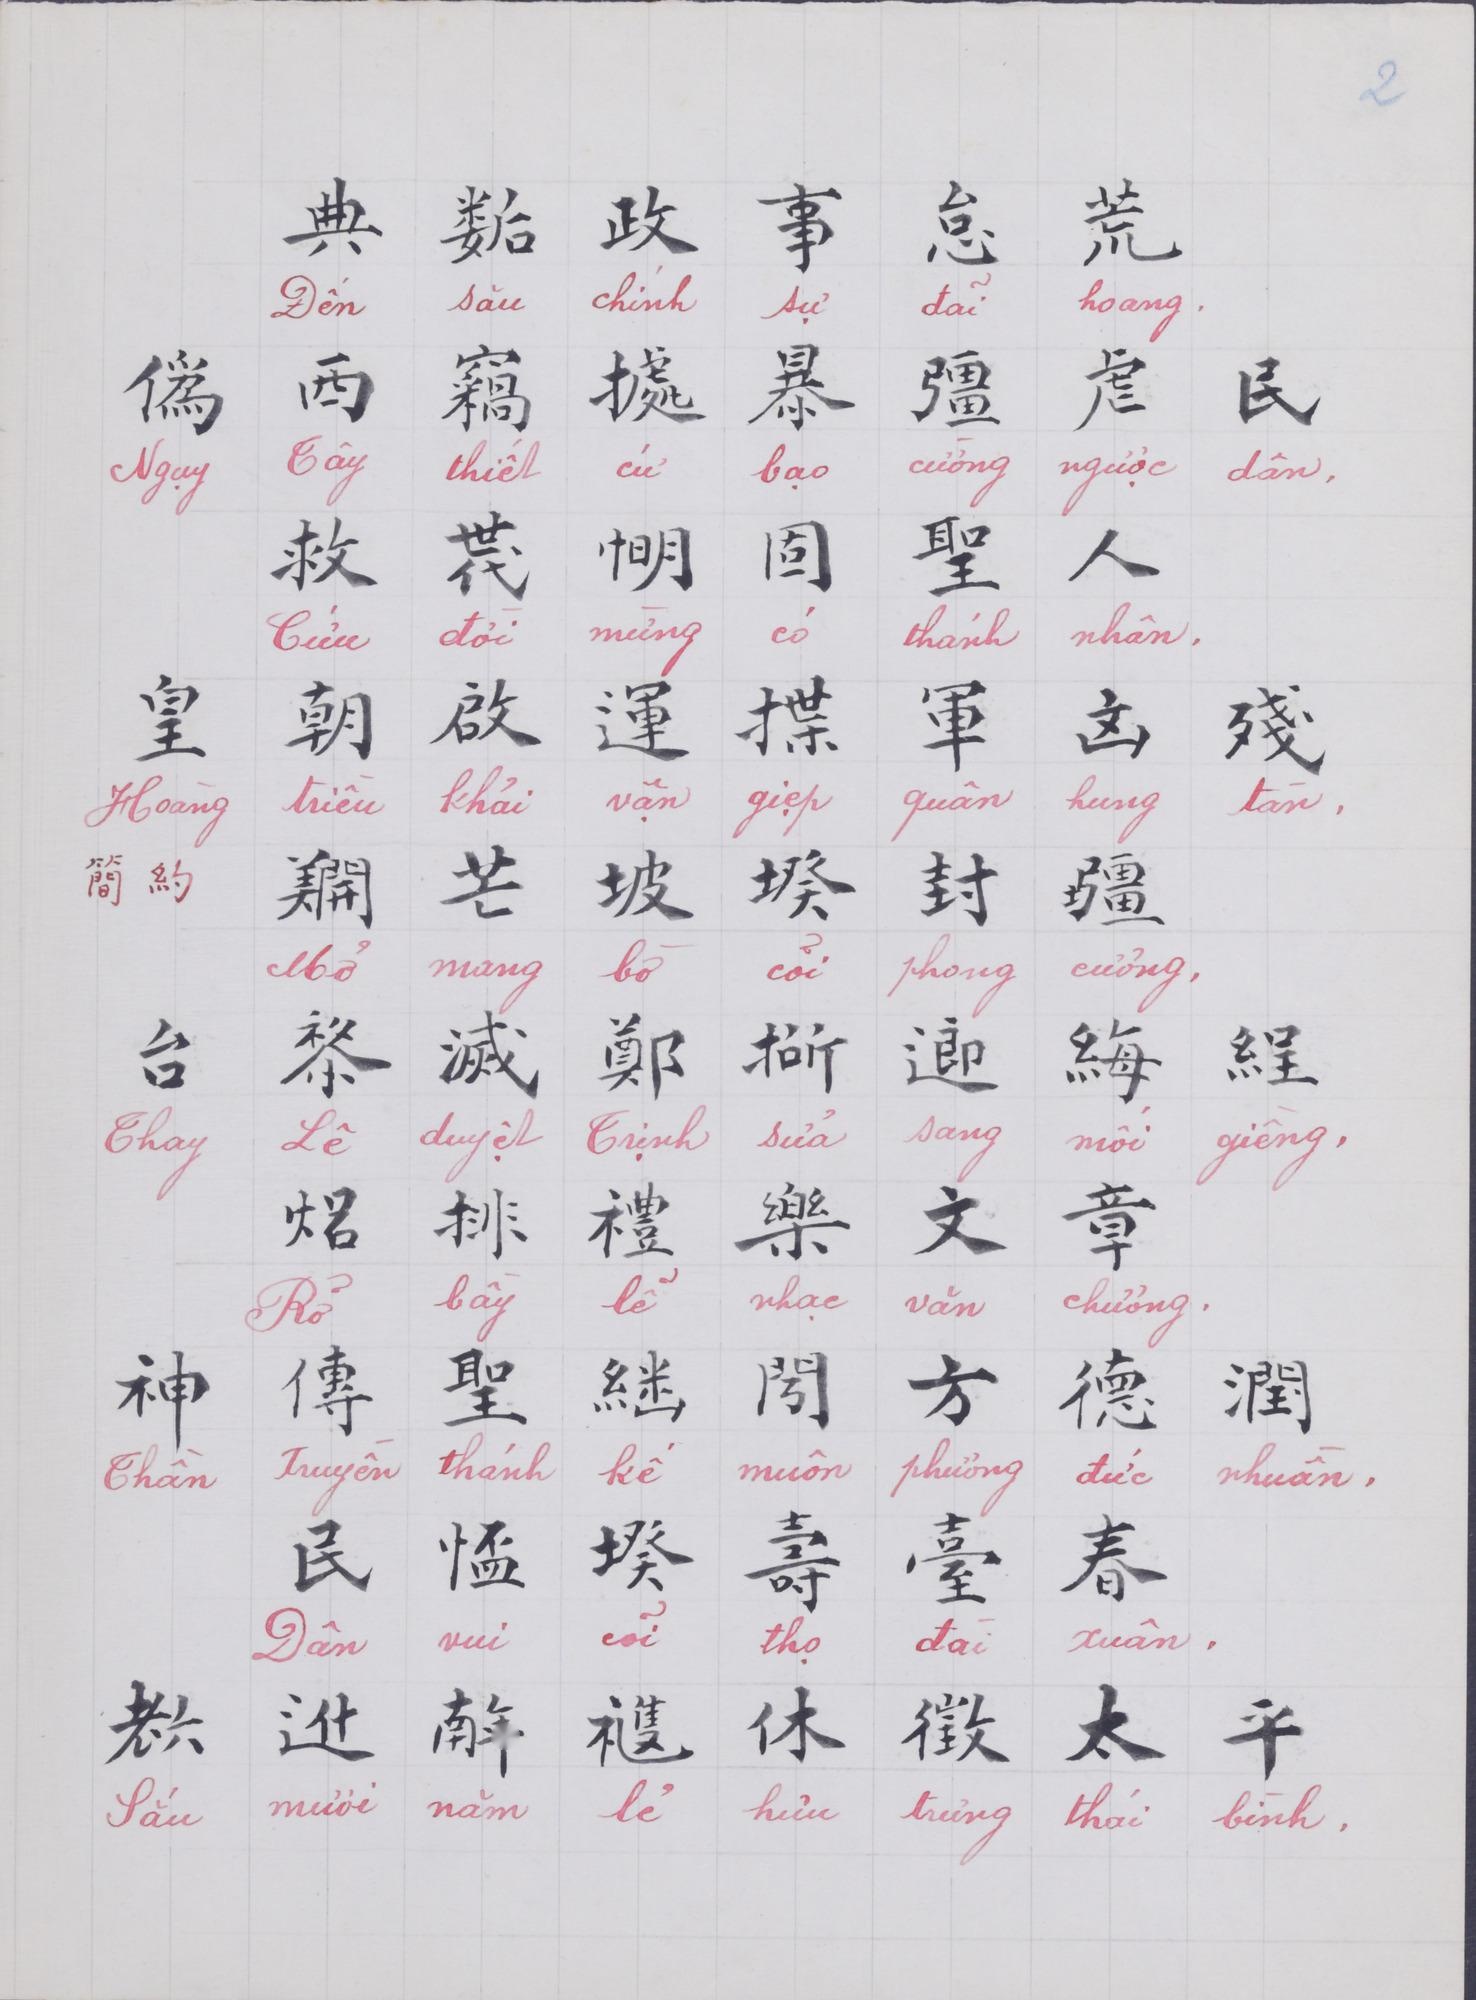 2
典 政 事 怠 荒
Đến său chính sự đãi hoang.
僞 西 竊 據 暴 彊 虐 民
Ngụy Tây thiết cứ bạo cường ngược dân.
救 固 聖 人
Cứu đời mừng có thánh nhân.
皇 朝 啟 運 揲 軍 凶 殘
Hoàng triều khải vận giẹp quân hung tàn.
簡 約 芒 坡 揆 封 疆
Mở mang bờ cỏi phong cương.
台 黎 滅 鄭 𢲫 迎 綎
Thay Lê duyệt Trịnh sửa sang mối giềng.
焒 排 禮 樂 文 章
Rỏ bầy lễ nhạc văn chương.
神 傳 聖 継 閍 方 德 潤
Thần Truyền thánh kế muôn phương đức nhuần.
民 𢝙 壽 臺 春
Dân vui cõi thọ đài xuân.
𦒹 𨑮 𢆥 𥘶 休 徵 太 平
Sáu mươi năm lẻ hưu trưng thái bình.